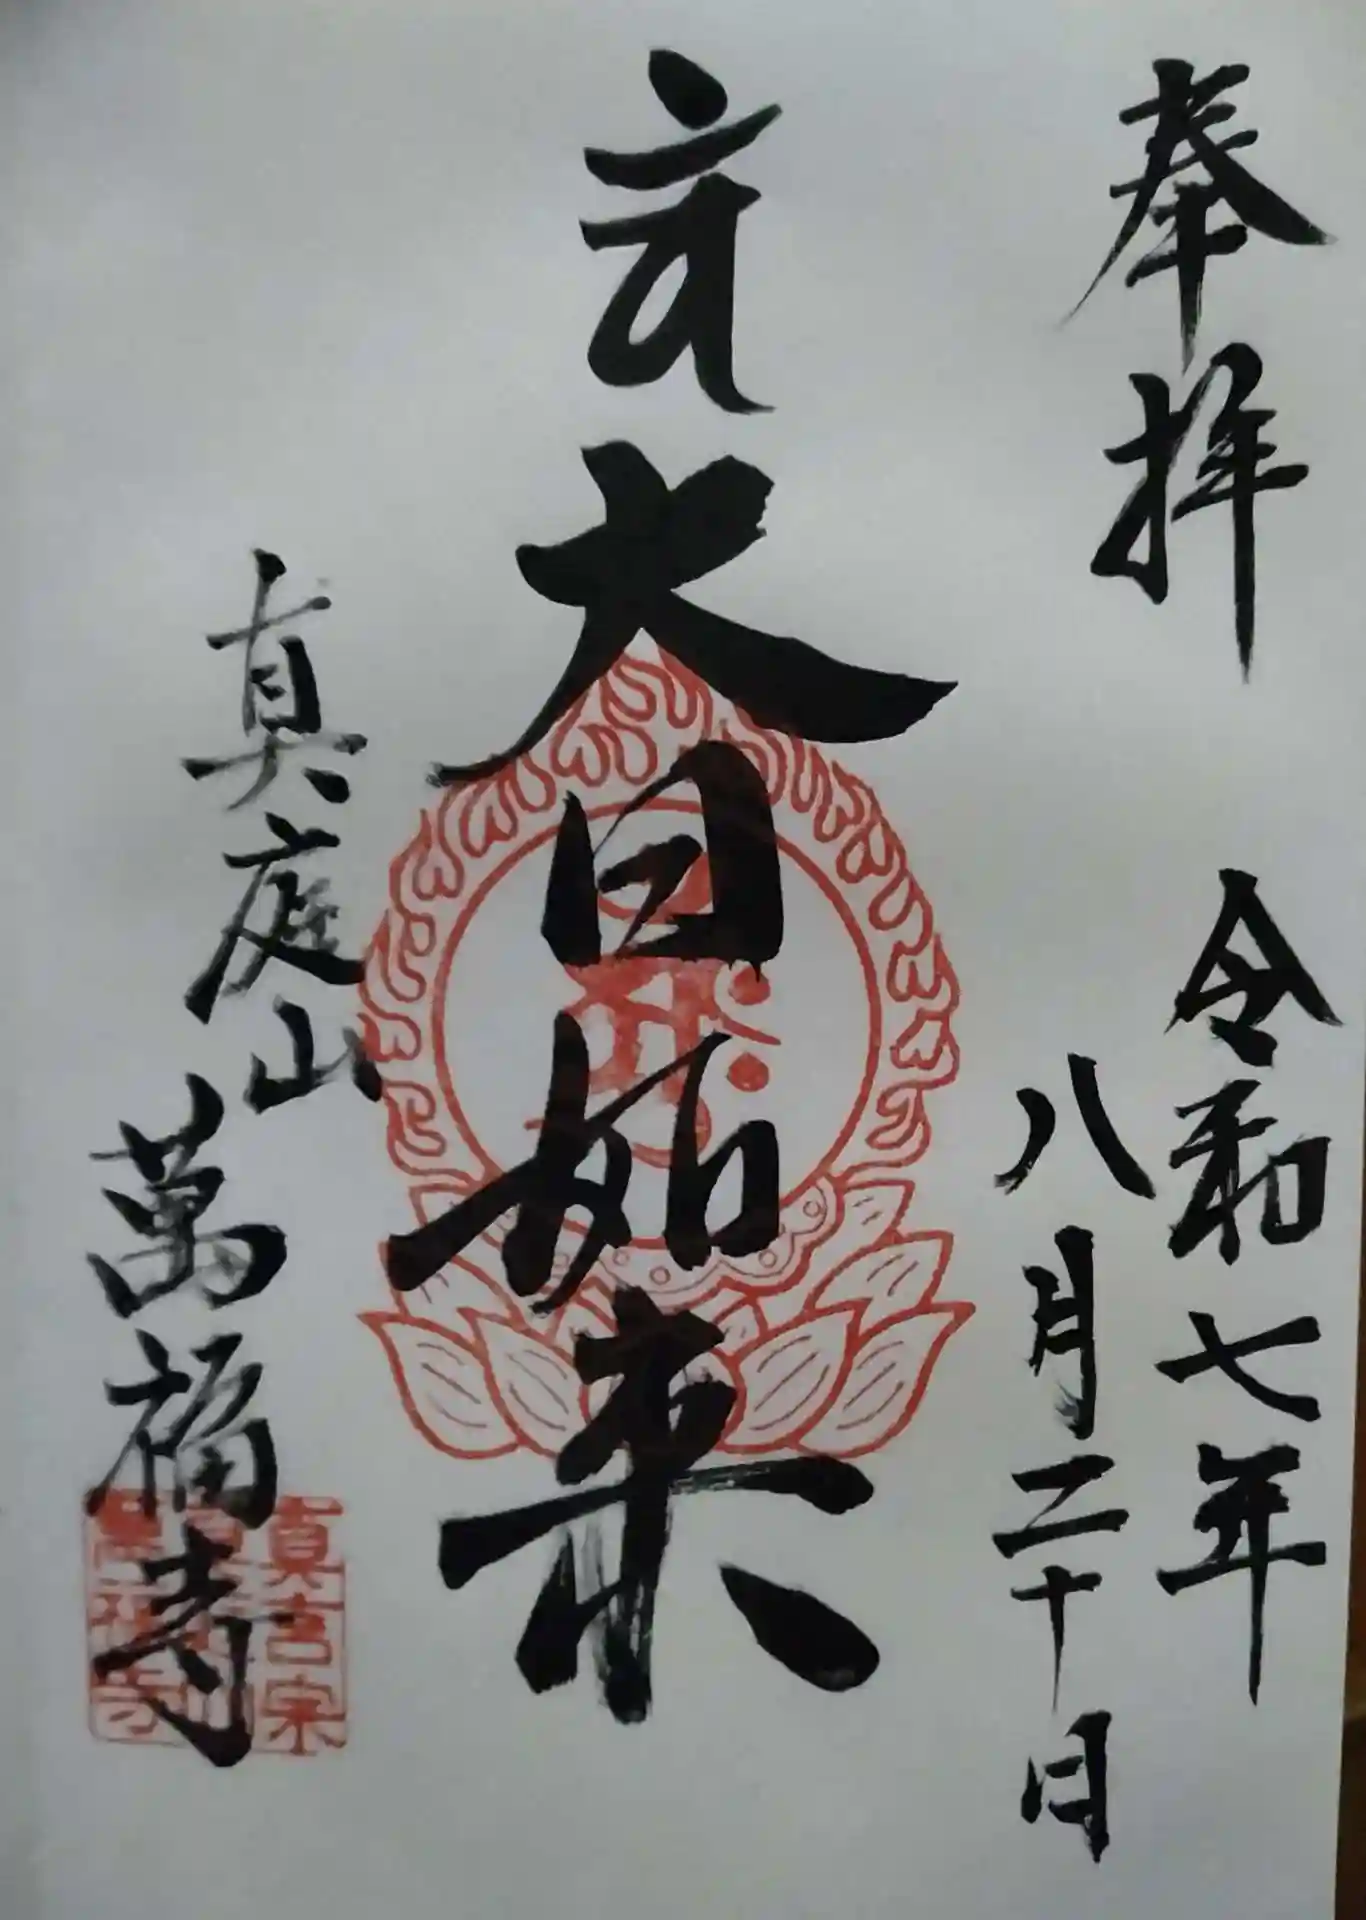 奉拝
令和七年
八月二十日
大日如来
真庭山
萬福寺
真言宗